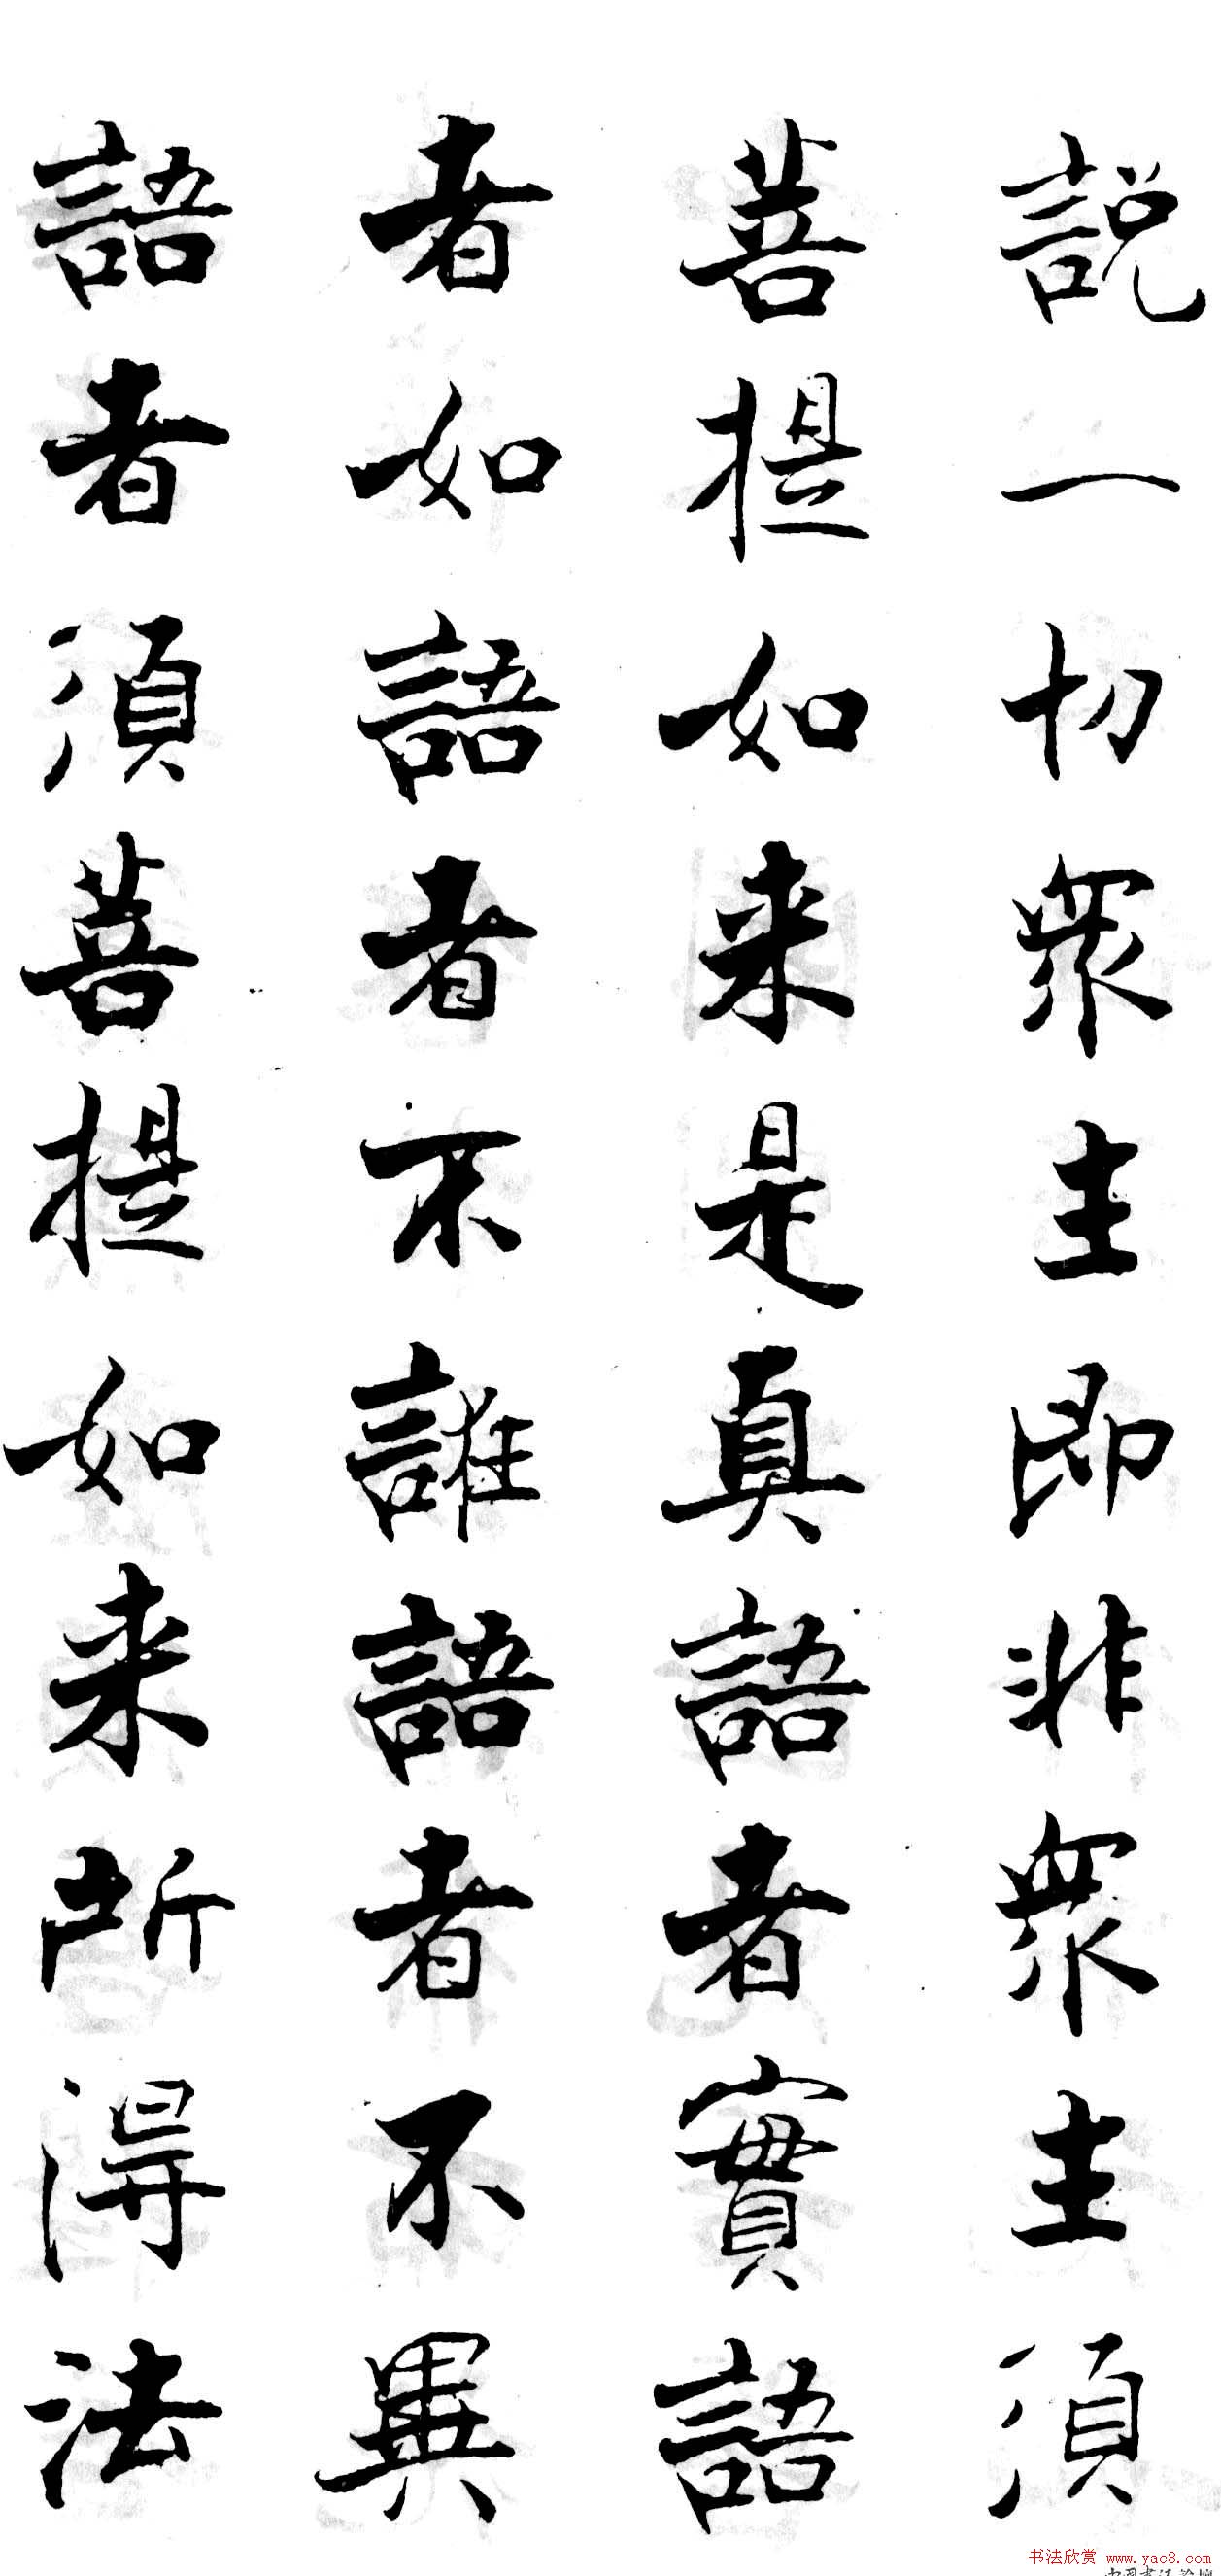 説一切衆生即非衆生須
菩提如来是真語者實語
者如語者不誑語者不異
語者須菩提如来所得法
书法欣赏 www.yac8.com